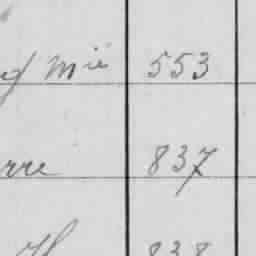 Mie 553
rre 837
838